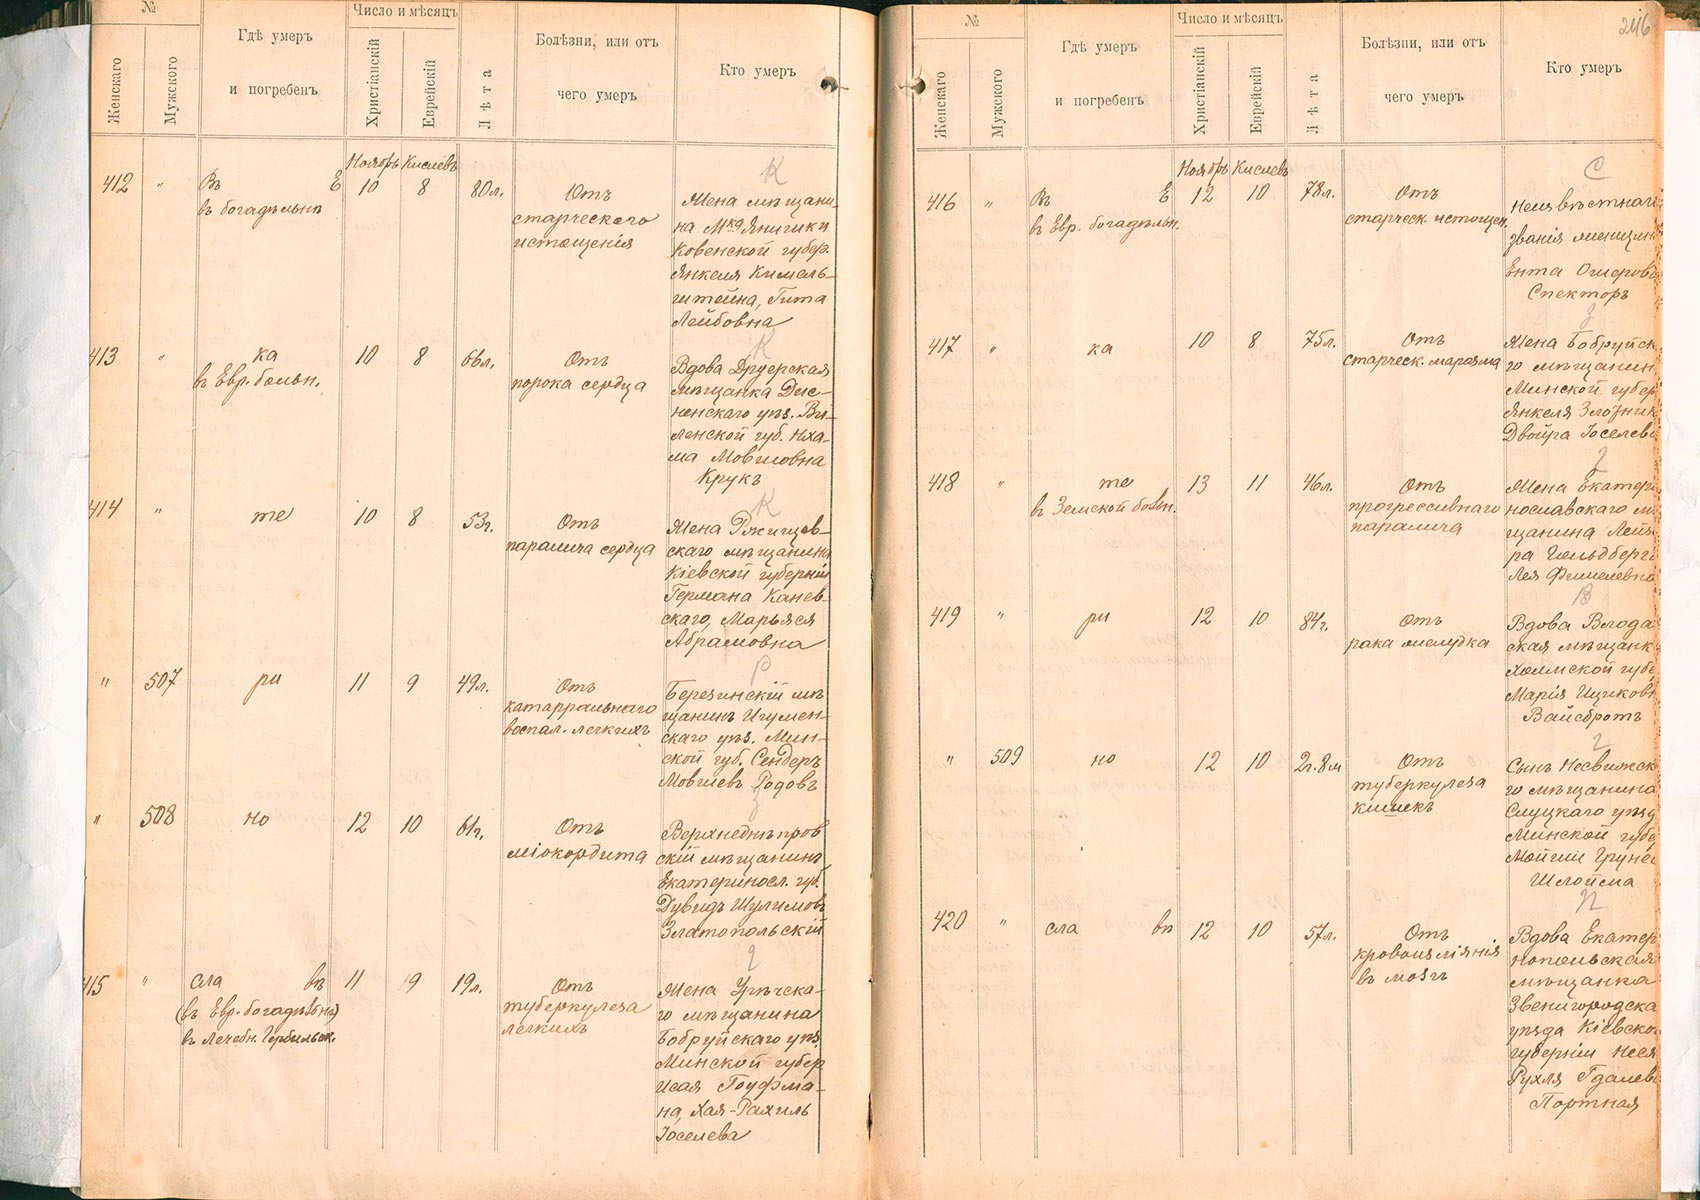 №
Женскаго
Мужского
Гдѣ умеръ
и погребенъ
Число и мѣсяцъ
Христіанскій
Еврейскій
Лѣта
Болѣзни, или отъ
чего умеръ
Кто умеръ
Ноябрь Кислевъ
К
412 " Въ Е 10 8 80л. Отъ
въ богадѣльнѣ
старческаго
истощенія
Жена мѣщани-
на Мка Янишки
Ковенской губер.
Янкеля Кимель-
штейна, Гита
Лейбовна
К
413 " ка 10 8 66л. Отъ
въ Евр. больн.
порока сердца
Вдова Друерская
мѣщанка Дис-
ненскаго уѣз. Ви-
ленской губ. Нха-
ма Мовшовна
Крукъ
К
414 " те 10 8 53г. Отъ
паралича сердца
Жена Ржищев-
скаго мѣщанина
Кіевской губерніи
Германа Канев-
скаго, Марьяся
Абрамовна
Р
" 507 ри 11 9 49л. Отъ
катарральнаго
воспал. легкихъ
Березинскій мѣ
щанинъ Игумен-
скаго уѣз. Мин-
ской губ. Сендеръ
Мовшевъ Родовъ
З
" 508 но 12 10 61г. Отъ
міокордита
Верхнеднѣпров
скій мѣщанинъ
Екатериносл. губ.
Дувидъ Шулимовъ
Златопольскій
Г
415 " сла въ 11 9 19л. Отъ
(въ Евр. богадѣльнѣ)
въ Лечебн.
туберкулеза
легкихъ
Жена Урѣчска-
го мѣщанина
Бобруйскаго уѣз.
Минской губер
Исая Гоуфма-
на, Хая-Рахиль
Іоселева
246
№
Женскаго
Мужского
Гдѣ умеръ
и погребенъ
Число и мѣсяцъ
Христіанскій
Еврейскій
Лѣта
Болѣзни, или отъ
чего умеръ
Кто умеръ
Ноябрь Кислевъ
С
416 " Въ Е 12 10 78л. Отъ
въ Евр. богадѣльн.
старческ. истощен.
Неизвѣстнаг
званія женщин
Ента Ошеров
Спекторъ
З
417 " ка 10 8 75л. Отъ
старческ. маразма
Жена Бобруйск
го мѣщанин
Минской губер
Янкеля Злотник
Двойра Іоселев
Г
418 " те 13 11 46л. Отъ
въ Земской больн.
прогрессивнаго
паралича
Жена Екатери
нославскаго м
щанина Лейз
ра Гольдберг
Лея Фишелевна
В
419 " ри 12 10 84г. Отъ
рака желудка
Вдова Влода
ская мѣщанк
Холмской губе
Марія Ицковн
Вайсбротъ
Г
" 509 но 12 10 2г.8м Отъ
туберкулеза
кишекъ
Сынъ Несвижск
го мѣщанина
Слуцкаго уѣзд
Минской губе
Мойши Грунь
Шлойма
П
420 " сла въ 12 10 57л. Отъ
кровоизліянія
въ мозгъ
Вдова Екатер
нопольская
мѣщанка
Звенигородска
уѣзда Кіевско
губерніи Неся
Рухля Гдалев
Портная